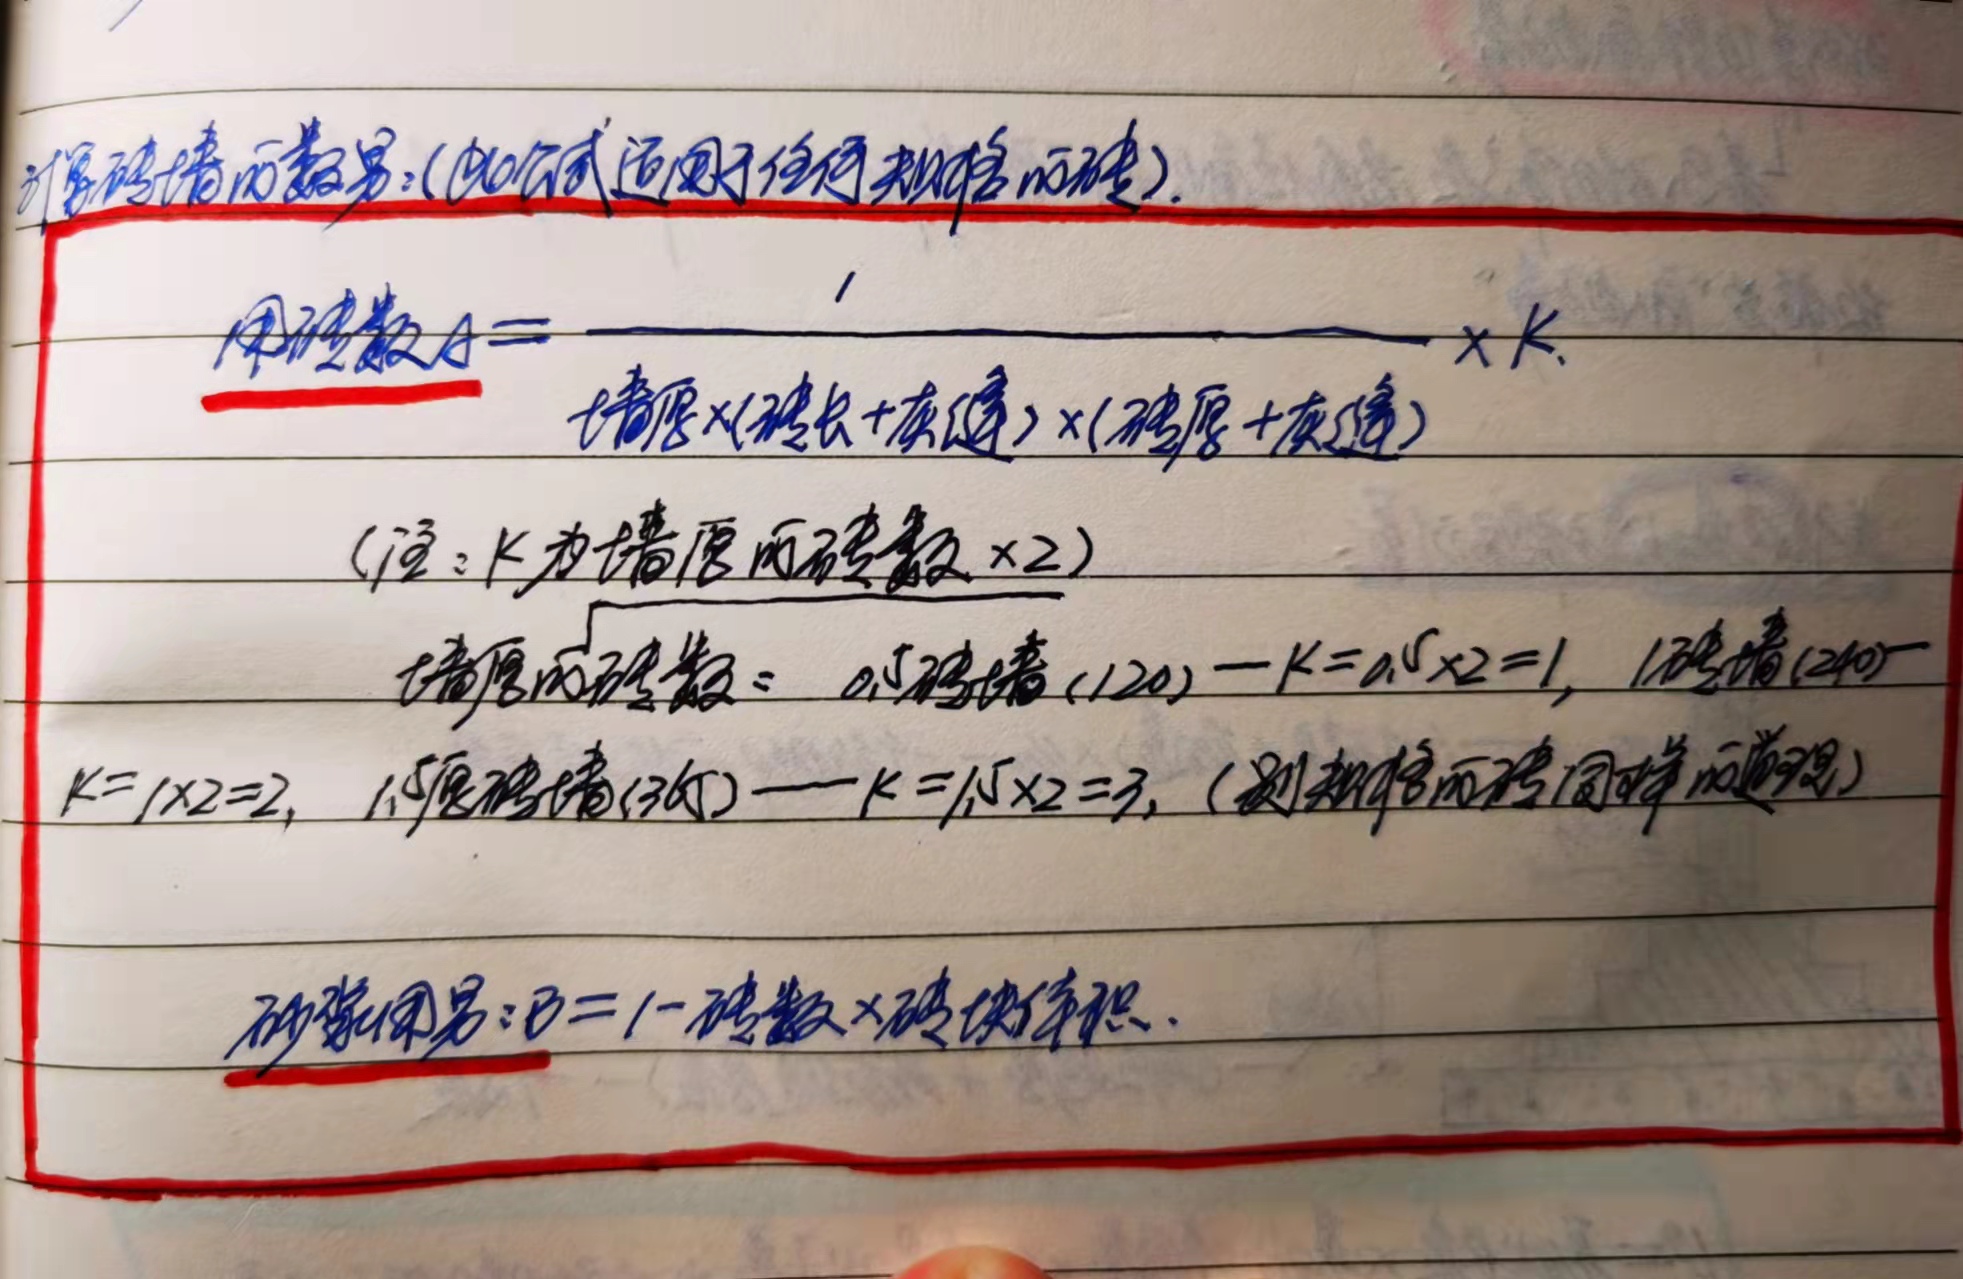 计算砖墙的数量:(此公式适用于任何规格的砖).
1
用砖数A= ———— ×K.
墙厚×(砖长+灰缝)×(砖厚+灰缝)
(注:K为墙厚的砖数×2)
墙厚的砖数: 0.5砖墙(120)—K=0.5×2=1, 1砖墙(240)—
K=1×2=2, 1.5厚砖墙(365)——K=1.5×2=3, (别规格的砖同样的道理)
砂浆用量:B=1-砖数×砖块体积.